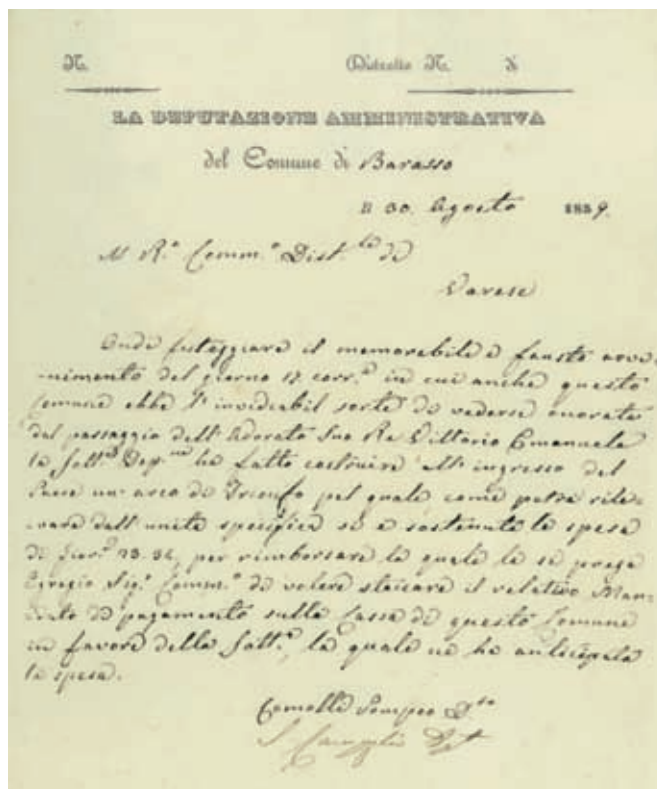 N. Distretto N. X
LA DEPUTAZIONE AMMINISTRATIVA
del Comune di Barasso
Il 30. Agosto 1859.
Al R.° Comm.° Dist.le di
Varese
Onde festeggiare il memorabile e fausto avve-
-nimento del giorno corr.e in cui anche questo
Comune ebbe l'invidiabil sorte di vedersi onorato
dal passaggio dell'Adorato Suo Re Vittorio Emanuele
la Sott.a Dep.ne ha fatto costruire all'ingresso del
Paese un arco di Trionfo pel quale come potrà rile-
-vare dall'unita specifica si è sostenuto la spesa
di per rimborsare la quale la si prega
Egregio Sig.r Comm.° di volere staccare il relativo Man-
-dato di pagamento sulla Cassa di questo Comune
in favore della Sott.a, la quale ne ha anticipata
la spesa.
Comolli Pompeo